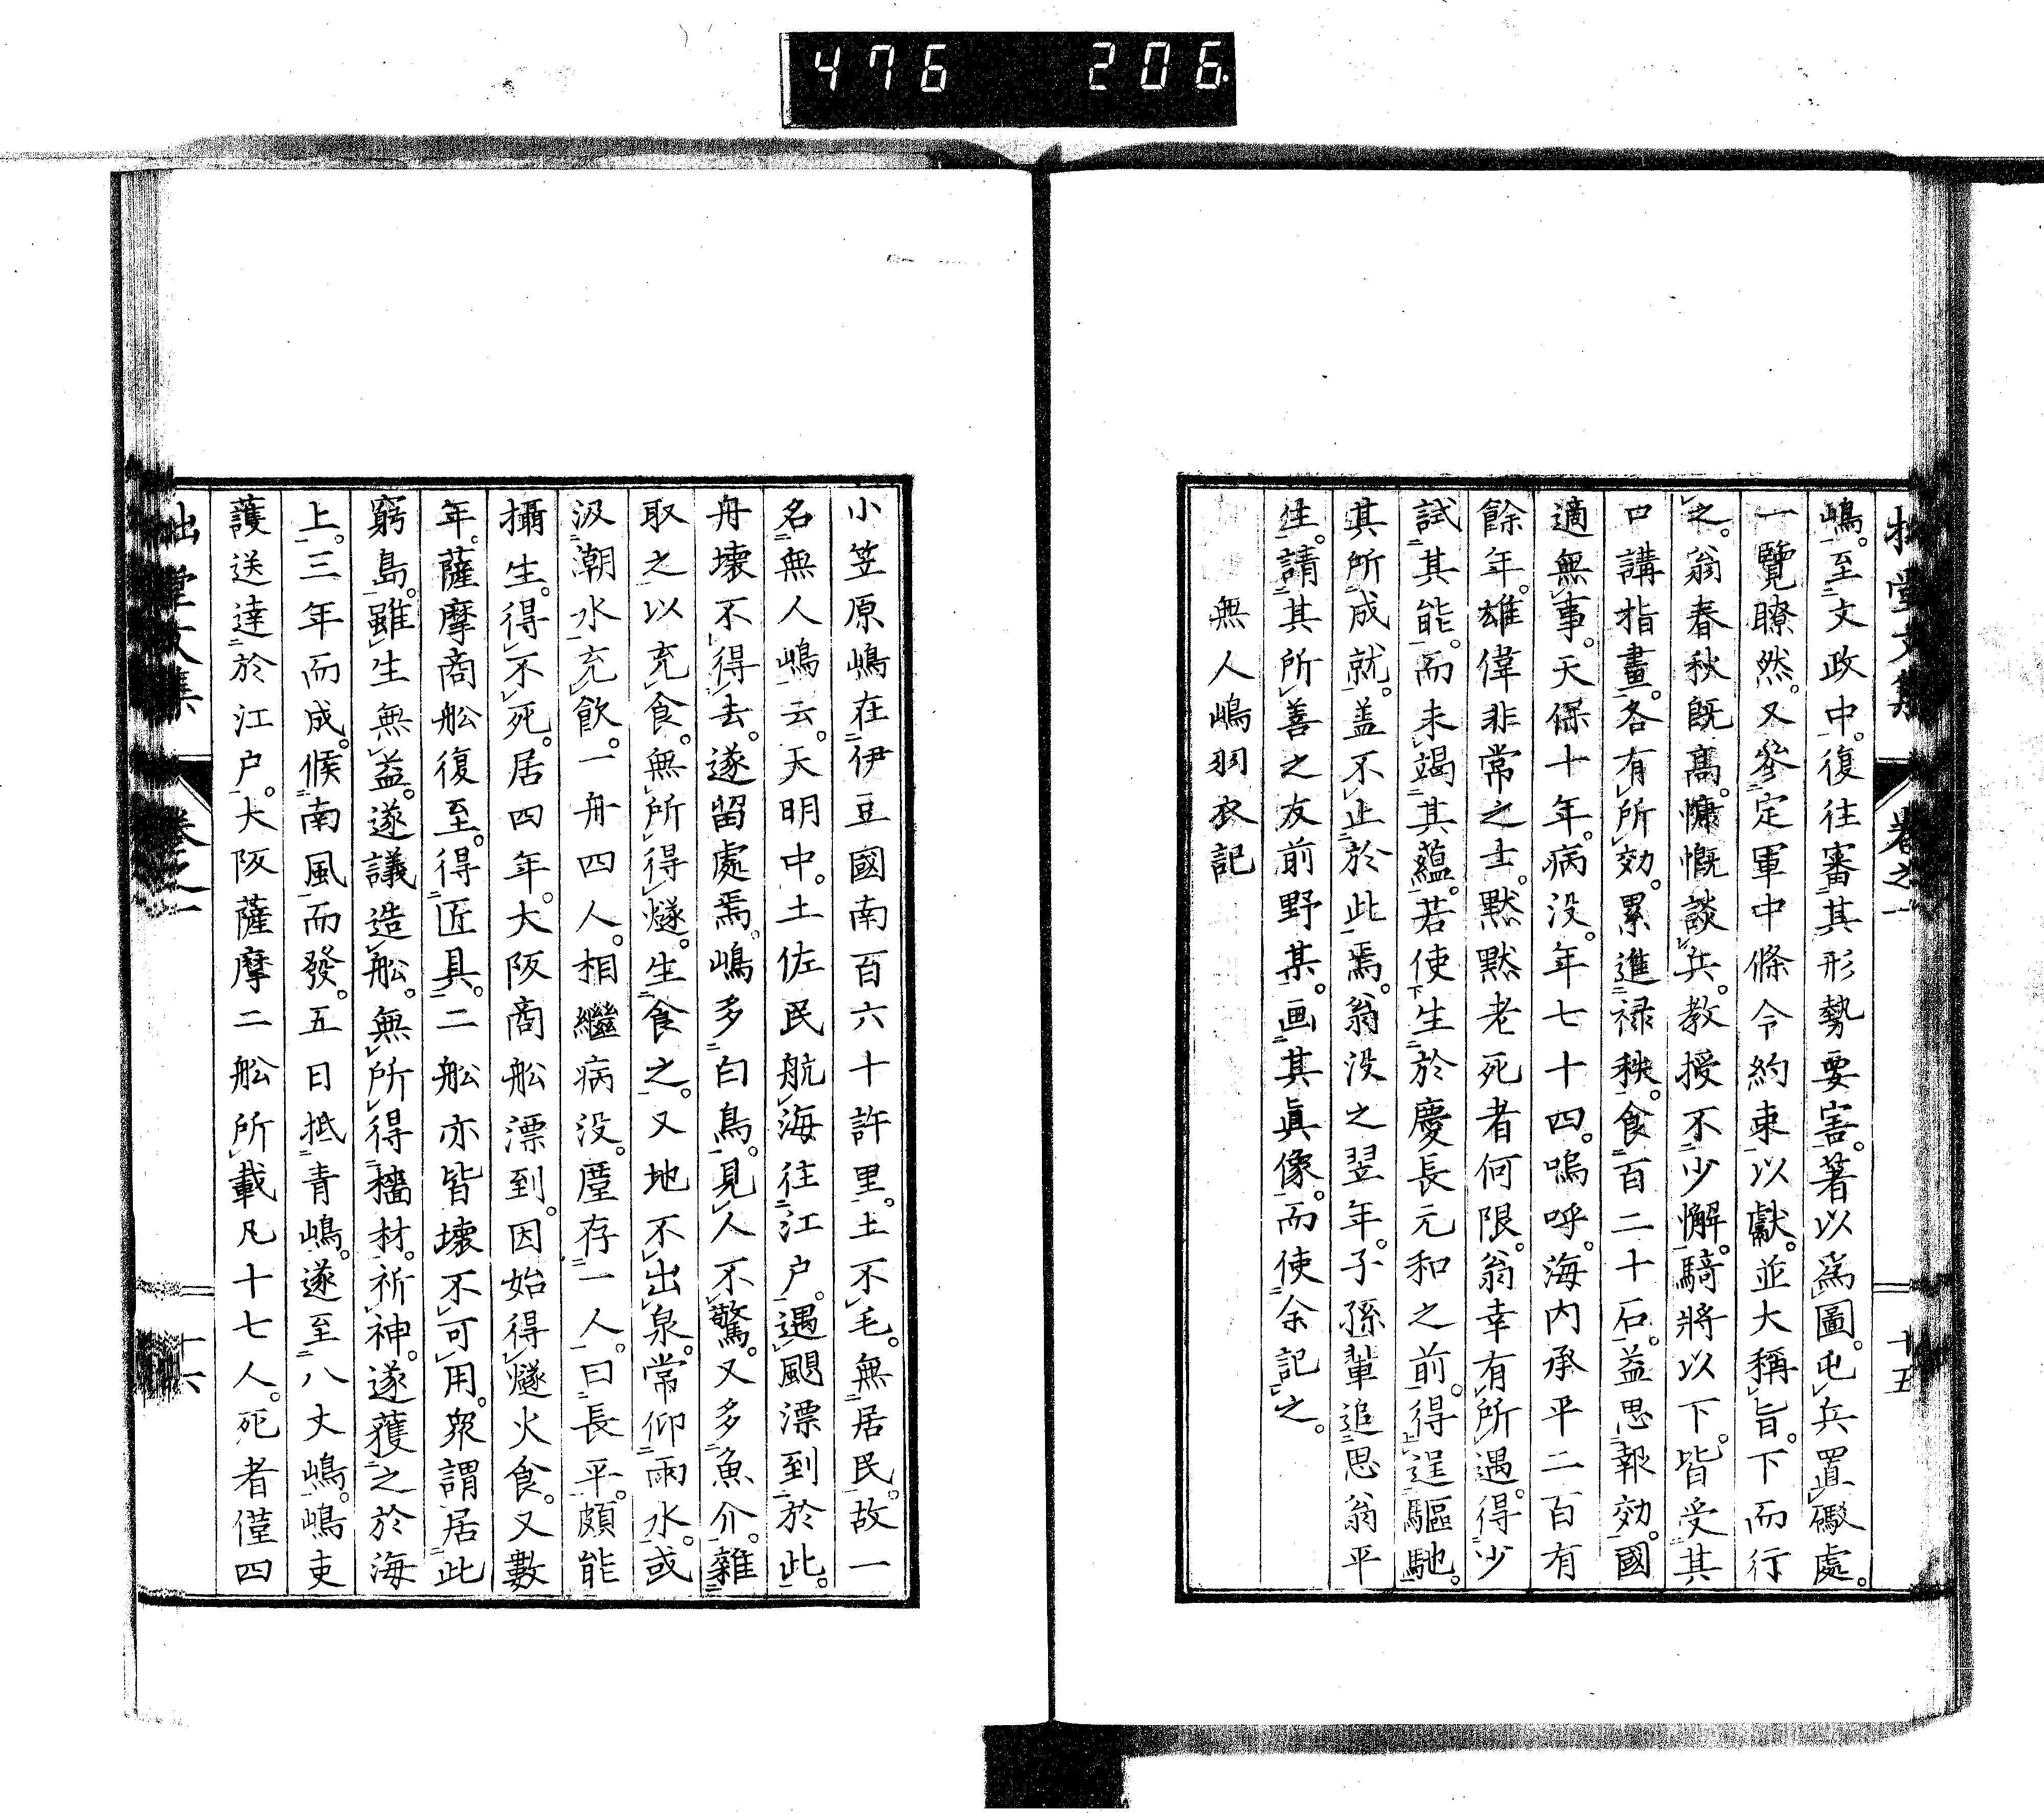 476 206
拙堂文集 卷之一 十五
嶋。至文政中。復往審其形勢要害。著以爲圖。屯兵置礮處。
一覽瞭然。又參定軍中條令約束以獻。並大稱旨。下而行
之。翁春秋既高。慷慨談兵。教授不少懈。騎將以下。皆受其
口講指畫。各有所効。累進禄秩。食百二十石。益思報効。國
適無事。天保十年。病没。年七十四。嗚呼。海内承平二百有
餘年。雄偉非常之士。黙黙老死者何限。翁幸有所遇。得少
試其能。而未竭其蘊。若使生於慶長元和之前。得逞驅馳。
其所成就。盖不止於此焉。翁没之翌年。子孫輩追思翁平
生。請其所善之友前野某。画其眞像。而使余記之。
無人嶋羽衣記
小笠原嶋在伊豆國南百六十許里。土不毛。無居民。故一
名無人嶋云。天明中。土佐民航海往江户。遇颶漂到於此。
舟壊不得去。遂留處焉。嶋多白鳥。見人不驚。又多魚介。雜
取之以充食。無所得燧。生食之。又地不出泉。常仰雨水。或
汲潮水充飲。一舟四人。相繼病没。廑存一人。曰長平。頗能
攝生。得不死。居四年。大阪商舩漂到。因始得燧火食。又數
年。薩摩商舩復至。得匠具。二舩亦皆壊不可用。衆謂居此
窮島。雖生無益。遂議造舩。無所得檣材。祈神。遂獲之於海
上。三年而成。候南風而發。五日抵青嶋。遂至八丈嶋。嶋吏
護送達於江户。大阪薩摩二舩所載凡十七人。死者僅四
拙堂文集 卷之一 十六